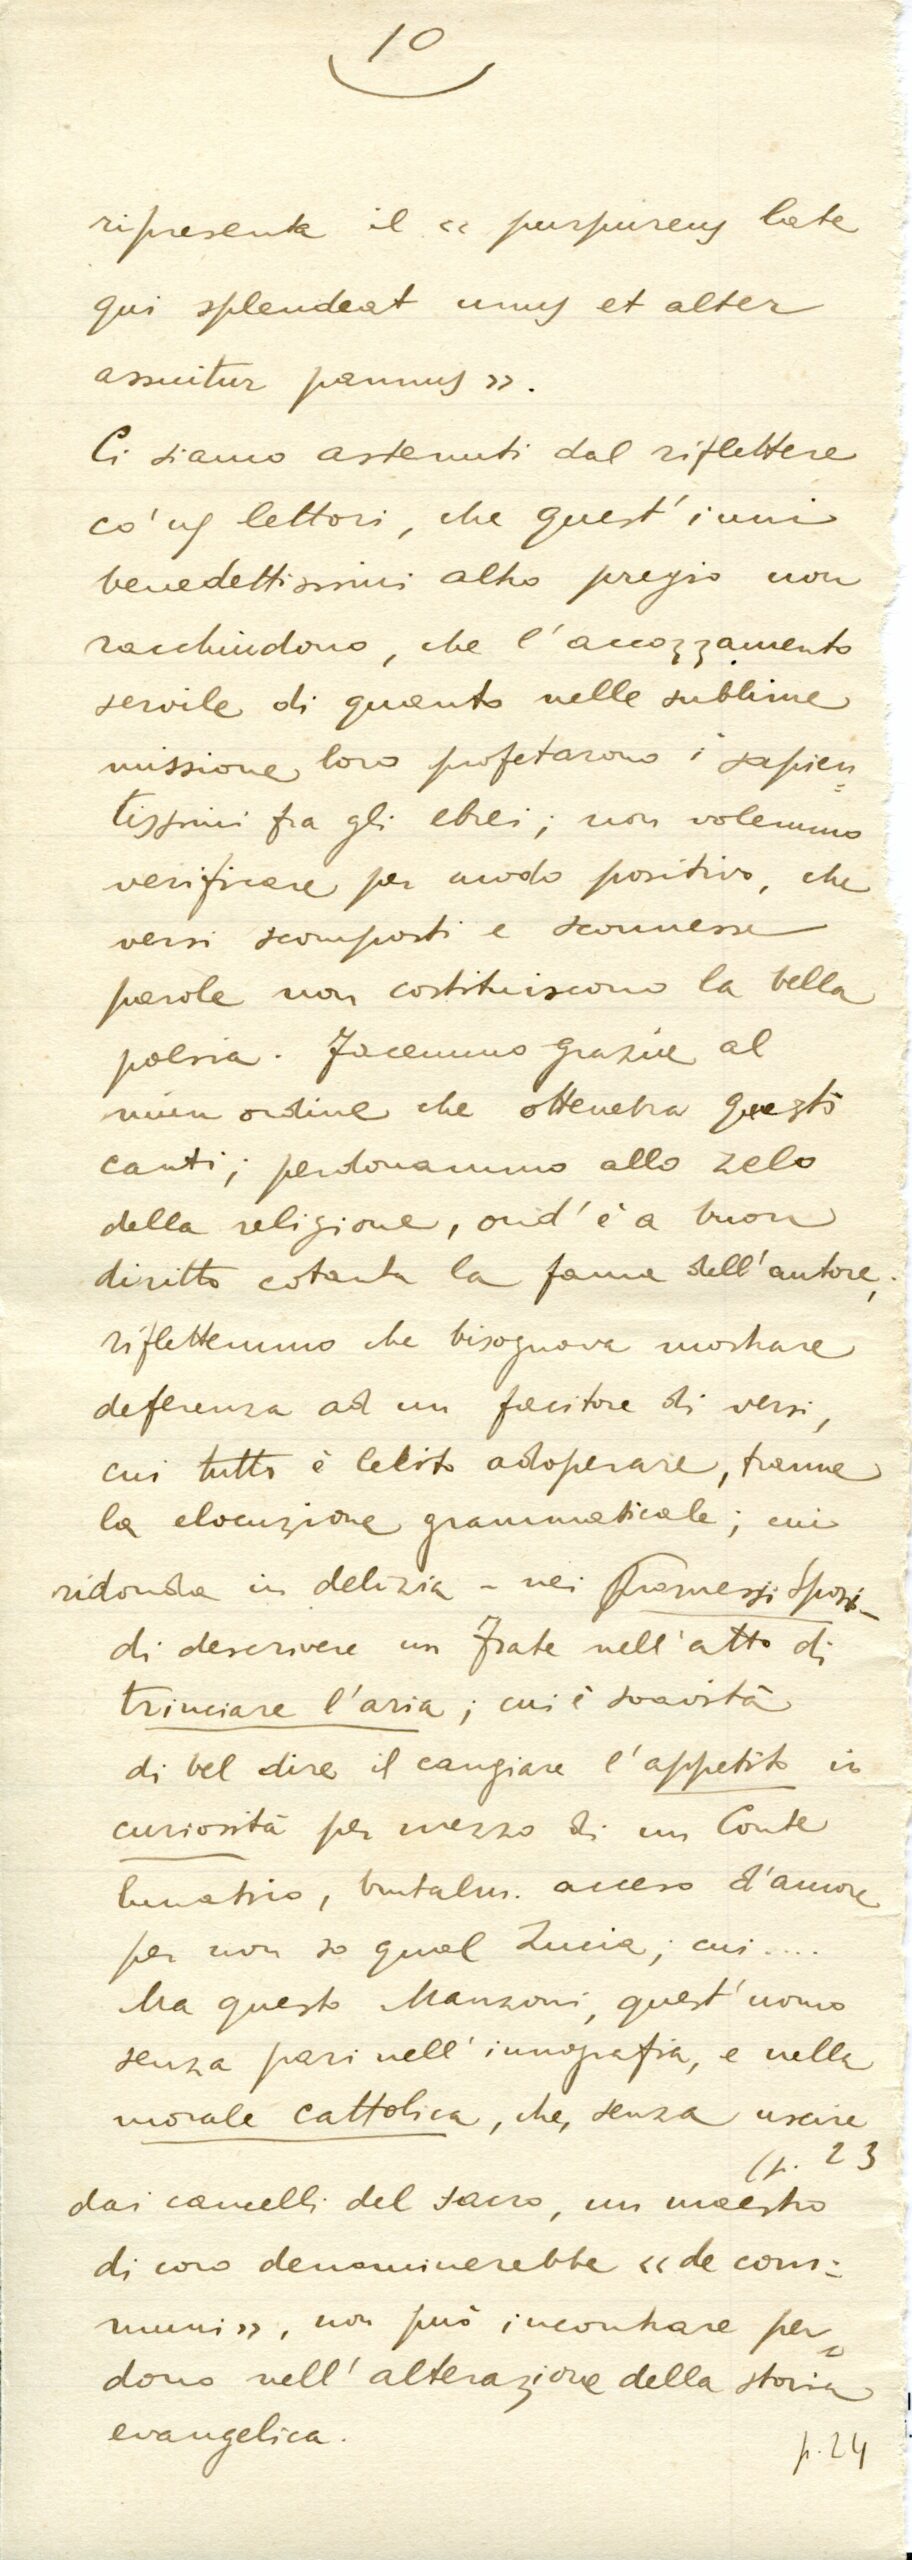 10
ripresenta il « purpureus late
qui splendeat unus et alter
assuitur pannus ».
Ci siamo astenuti dal riflettere
co' ns lettori, che quest'inni
benedettissimi altro pregio non
racchiudono, che l'accozzamento
servile di quanto nelle sublime
missione loro profetarono i sapien=
tissimi fra gli ebrei; non volemmo
verificare per modo positivo, che
versi scomposti e sconnesse
parole non costituiscono la bella
poesia. Facemmo grazie al
niun ordine che ottenebra questi
canti; perdonammo allo zelo
della religione, ond'è a buon
diritto cotanta la fama dell'autore;
riflettemmo che bisognava mostrare
deferenza ad un facitore di versi,
cui tutto è lecito adoperare, tranne
la elocuzione grammaticale; cui
ridonda in delizia - nei Promessi Sposi -
di descrivere un Frate nell'atto di
trinciare l'aria; cui è soavità
di bel dire il cangiare l'appetito in
curiosità per mezzo di un Conte
lunatico, brutalm. acceso d'amore
per non so qual Lucia; cui ....
Ma questo Manzoni, quest'uomo
senza pari nell'innografia, e nella
morale cattolica, che, senza uscire
(p. 23
dai cancelli del sacro, un maestro
di coro denominerebbe « de com=
muni », non può incontrare per=
dono nell'alterazione della storia
evangelica.
p. 24